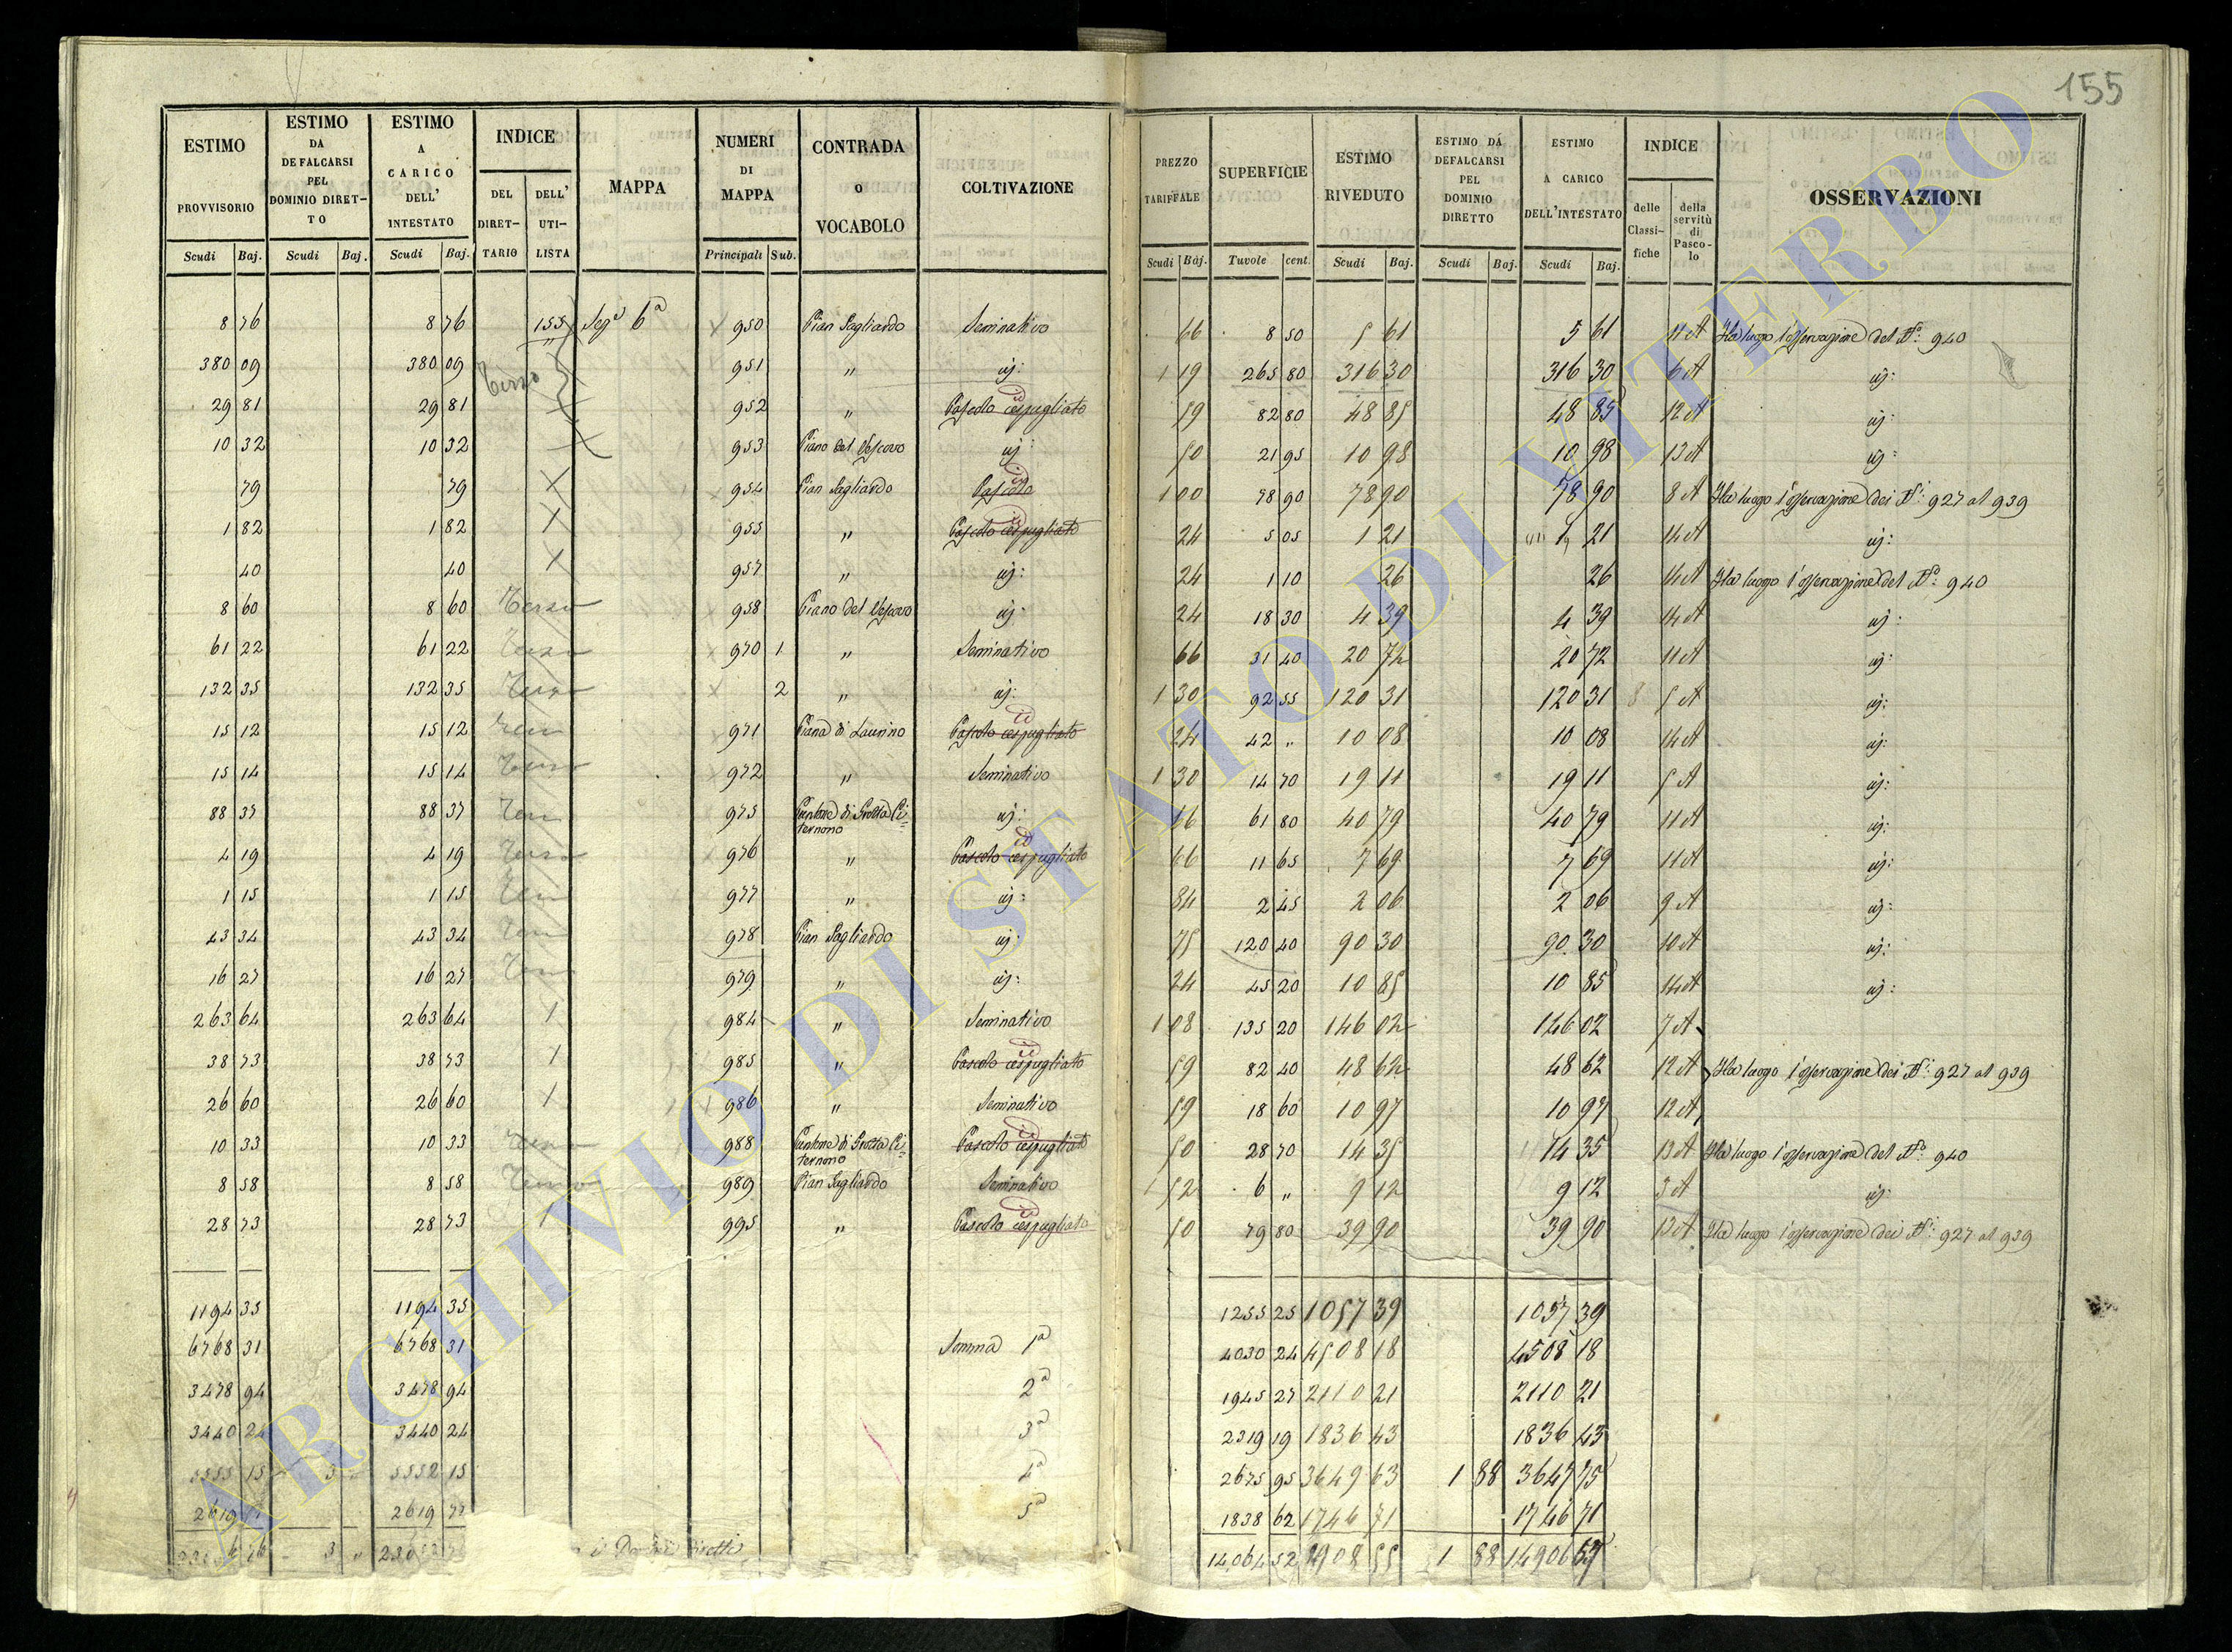 155
ESTIMO PROVVISORIO Scudi Baj. ESTIMO DA DEFALCARSI PEL DOMINIO DIRETTO Scudi Baj. ESTIMO A CARICO DELL' INTESTATO Scudi Baj. INDICE DEL DIRETTARIO DELL' UTILISTA MAPPA NUMERI DI MAPPA Principali Sub. CONTRADA O VOCABOLO COLTIVAZIONE
PREZZO TARIFFALE Scudi Baj. SUPERFICIE Tavole cent. ESTIMO RIVEDUTO Scudi Baj. ESTIMO DA DEFALCARSI PEL DOMINIO DIRETTO Scudi Baj. ESTIMO A CARICO DELL'INTESTATO Scudi Baj. INDICE delle Classifiche della servitù di Pascolo OSSERVAZIONI
8 76 8 76 155 Sez.e 6a 950 Pian Gagliardo Seminativo 66 8 50 5 61 5 61 11 A Ha luogo l'osservazione del N.o 940
380 09 380 09 Terzo 951 " id: 1 19 265 80 316 30 316 30 6 A id:
29 81 29 81 952 " Pascolo cespugliato 59 82 80 48 85 48 85 12 A id:
10 32 10 32 953 Piano del Vescovo id: 50 21 95 10 98 10 98 13 A id:
79 79 X 954 Pian Gagliardo Pascolo 1 00 78 90 78 90 78 90 8 A Ha luogo l'osservazione dei N.i 927 al 939
1 82 1 82 X 955 " Pascolo cespugliato 24 5 05 1 21 1 21 14 A id:
40 40 X 957 " id: 24 1 10 26 26 14 A Ha luogo l'osservazione del N.o 940
8 60 8 60 Terzo 958 Piano del Vescovo id: 24 18 30 4 39 4 39 14 A id:
61 22 61 22 Terzo 970 1 " Seminativo 66 31 40 20 72 20 72 11 A id:
132 35 132 35 Terzo 2 " id: 1 30 92 55 120 31 120 31 5 A id:
15 12 15 12 971 Piana di Laurino Pascolo cespugliato 24 42 " 10 08 10 08 14 A id:
15 14 15 14 Terzo 972 " Seminativo 1 30 14 70 19 11 19 11 5 A id:
88 37 88 37 975 Cantone di Grotta Cisternono id: 66 61 80 40 79 40 79 11 A id:
4 19 4 19 Terzo 976 " Pascolo cespugliato id 66 11 65 7 69 7 69 11 A id:
1 15 1 15 977 " id: 84 2 45 2 06 2 06 9 A id:
43 34 43 34 978 Pian Gagliardo id: 75 120 40 90 30 90 30 10 A id:
16 27 16 27 979 " id: 24 45 20 10 85 10 85 14 A id:
263 64 263 64 984 " Seminativo 1 08 135 20 146 02 146 02 7 A
38 73 38 73 985 " Pascolo cespugliato 59 82 40 48 62 48 62 12 A Ha luogo l'osservazione dei N.i 927 al 939
26 60 26 60 986 " Seminativo 59 18 60 10 97 10 97 12 A
10 33 10 33 988 Cantone di Grotta Cisternono Pascolo cespugliato 50 28 70 14 35 14 35 13 A Ha luogo l'osservazione del N.o 940
8 58 8 58 989 Pian Gagliardo Seminativo 1 52 6 " 9 12 9 12 3 A id:
28 73 28 73 995 " Pascolo cespugliato 50 79 80 39 90 39 90 13 A Ha luogo l'osservazione dei N.i 927 al 939
1194 35 1194 35 1255 25 1057 39 1057 39
6768 31 6768 31 Somma 1a 4030 24 4508 18 4508 18
3478 94 3478 94 2a 1945 27 2110 21 2110 21
3440 24 3440 24 3a 2319 19 1836 43 1836 43
15 3 5552 15 4a 2675 95 3649 63 1 88 3647 75
2619 2619 5a 1838 62 1746 71 1746 71
3 14064 52 14908 55 1 88 14906 67
ARCHIVIO DI STATO DI VITERBO